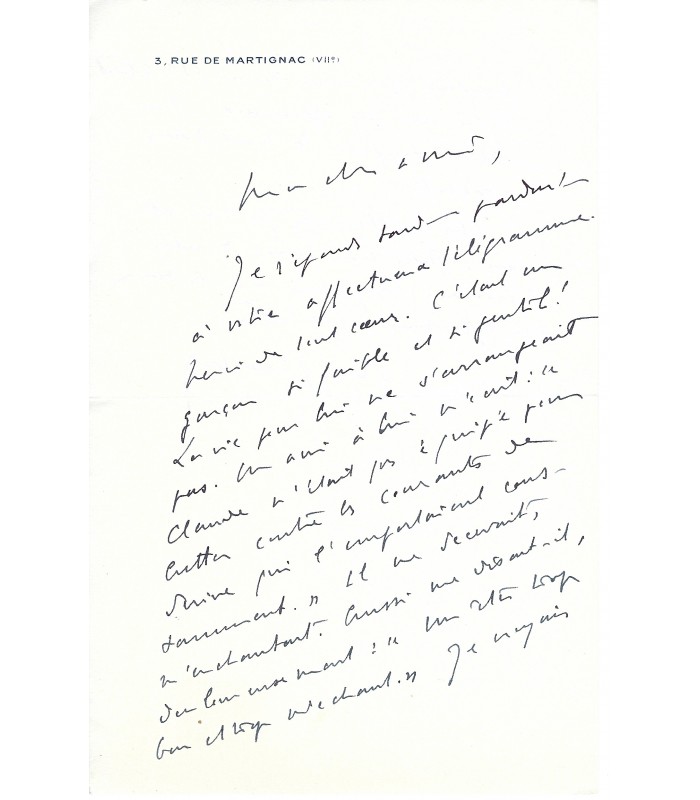 3, RUE DE MARTIGNAC (VIIe)
Mon cher ami,
Je réponds tard
à votre affectueux télégramme.
Merci de tout cœur. C'était un
garçon si faible et si gentil!
La vie pour lui ne s'arrangeait
pas. Un ami à lui m'écrit : "
Claude n'était pas équipé pour
lutter contre les courants de
dérive qui l'emportaient cons-
tamment." Il me
m'enchantait. Aussi me disait-il,
douloureusement : " Un être trop
bon et trop méchant." Je